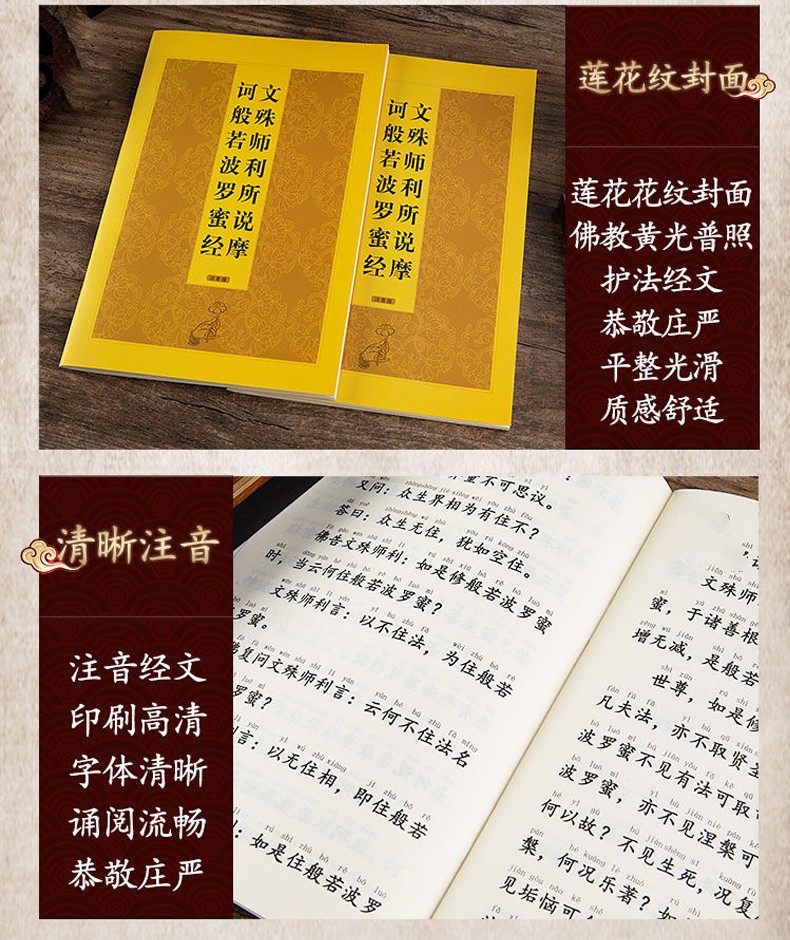 文殊师利所说摩
诃般若波罗蜜经
注音版
文殊师利所说摩
诃般若波罗蜜经
注音版
莲花纹封面
莲花花纹封面
佛教黄光普照
护法经文
恭敬庄严
平整光滑
质感舒适
清晰注音
注音经文
印刷高清
字体清晰
诵阅流畅
恭敬庄严
量不可思议。
又问：众生界相为有住不？
答曰：众生无住，犹如空住。
佛告文殊师利：如是修般若波罗蜜
时，当云何住般若波罗蜜？
文殊师利言：以不住法，为住般若
罗蜜。
复问文殊师利言：云何不住法名
罗蜜？
言：以无住相，即住般若
：如是住般若波罗
文殊师
蜜，于诸善根
增无减，是般若
世尊，如是修
凡夫法，亦不取贤圣
波罗蜜不见有法可取
波罗蜜，亦不见涅槃可
何以故？不见生死，况复
槃，何况乐著？如
见垢恼可